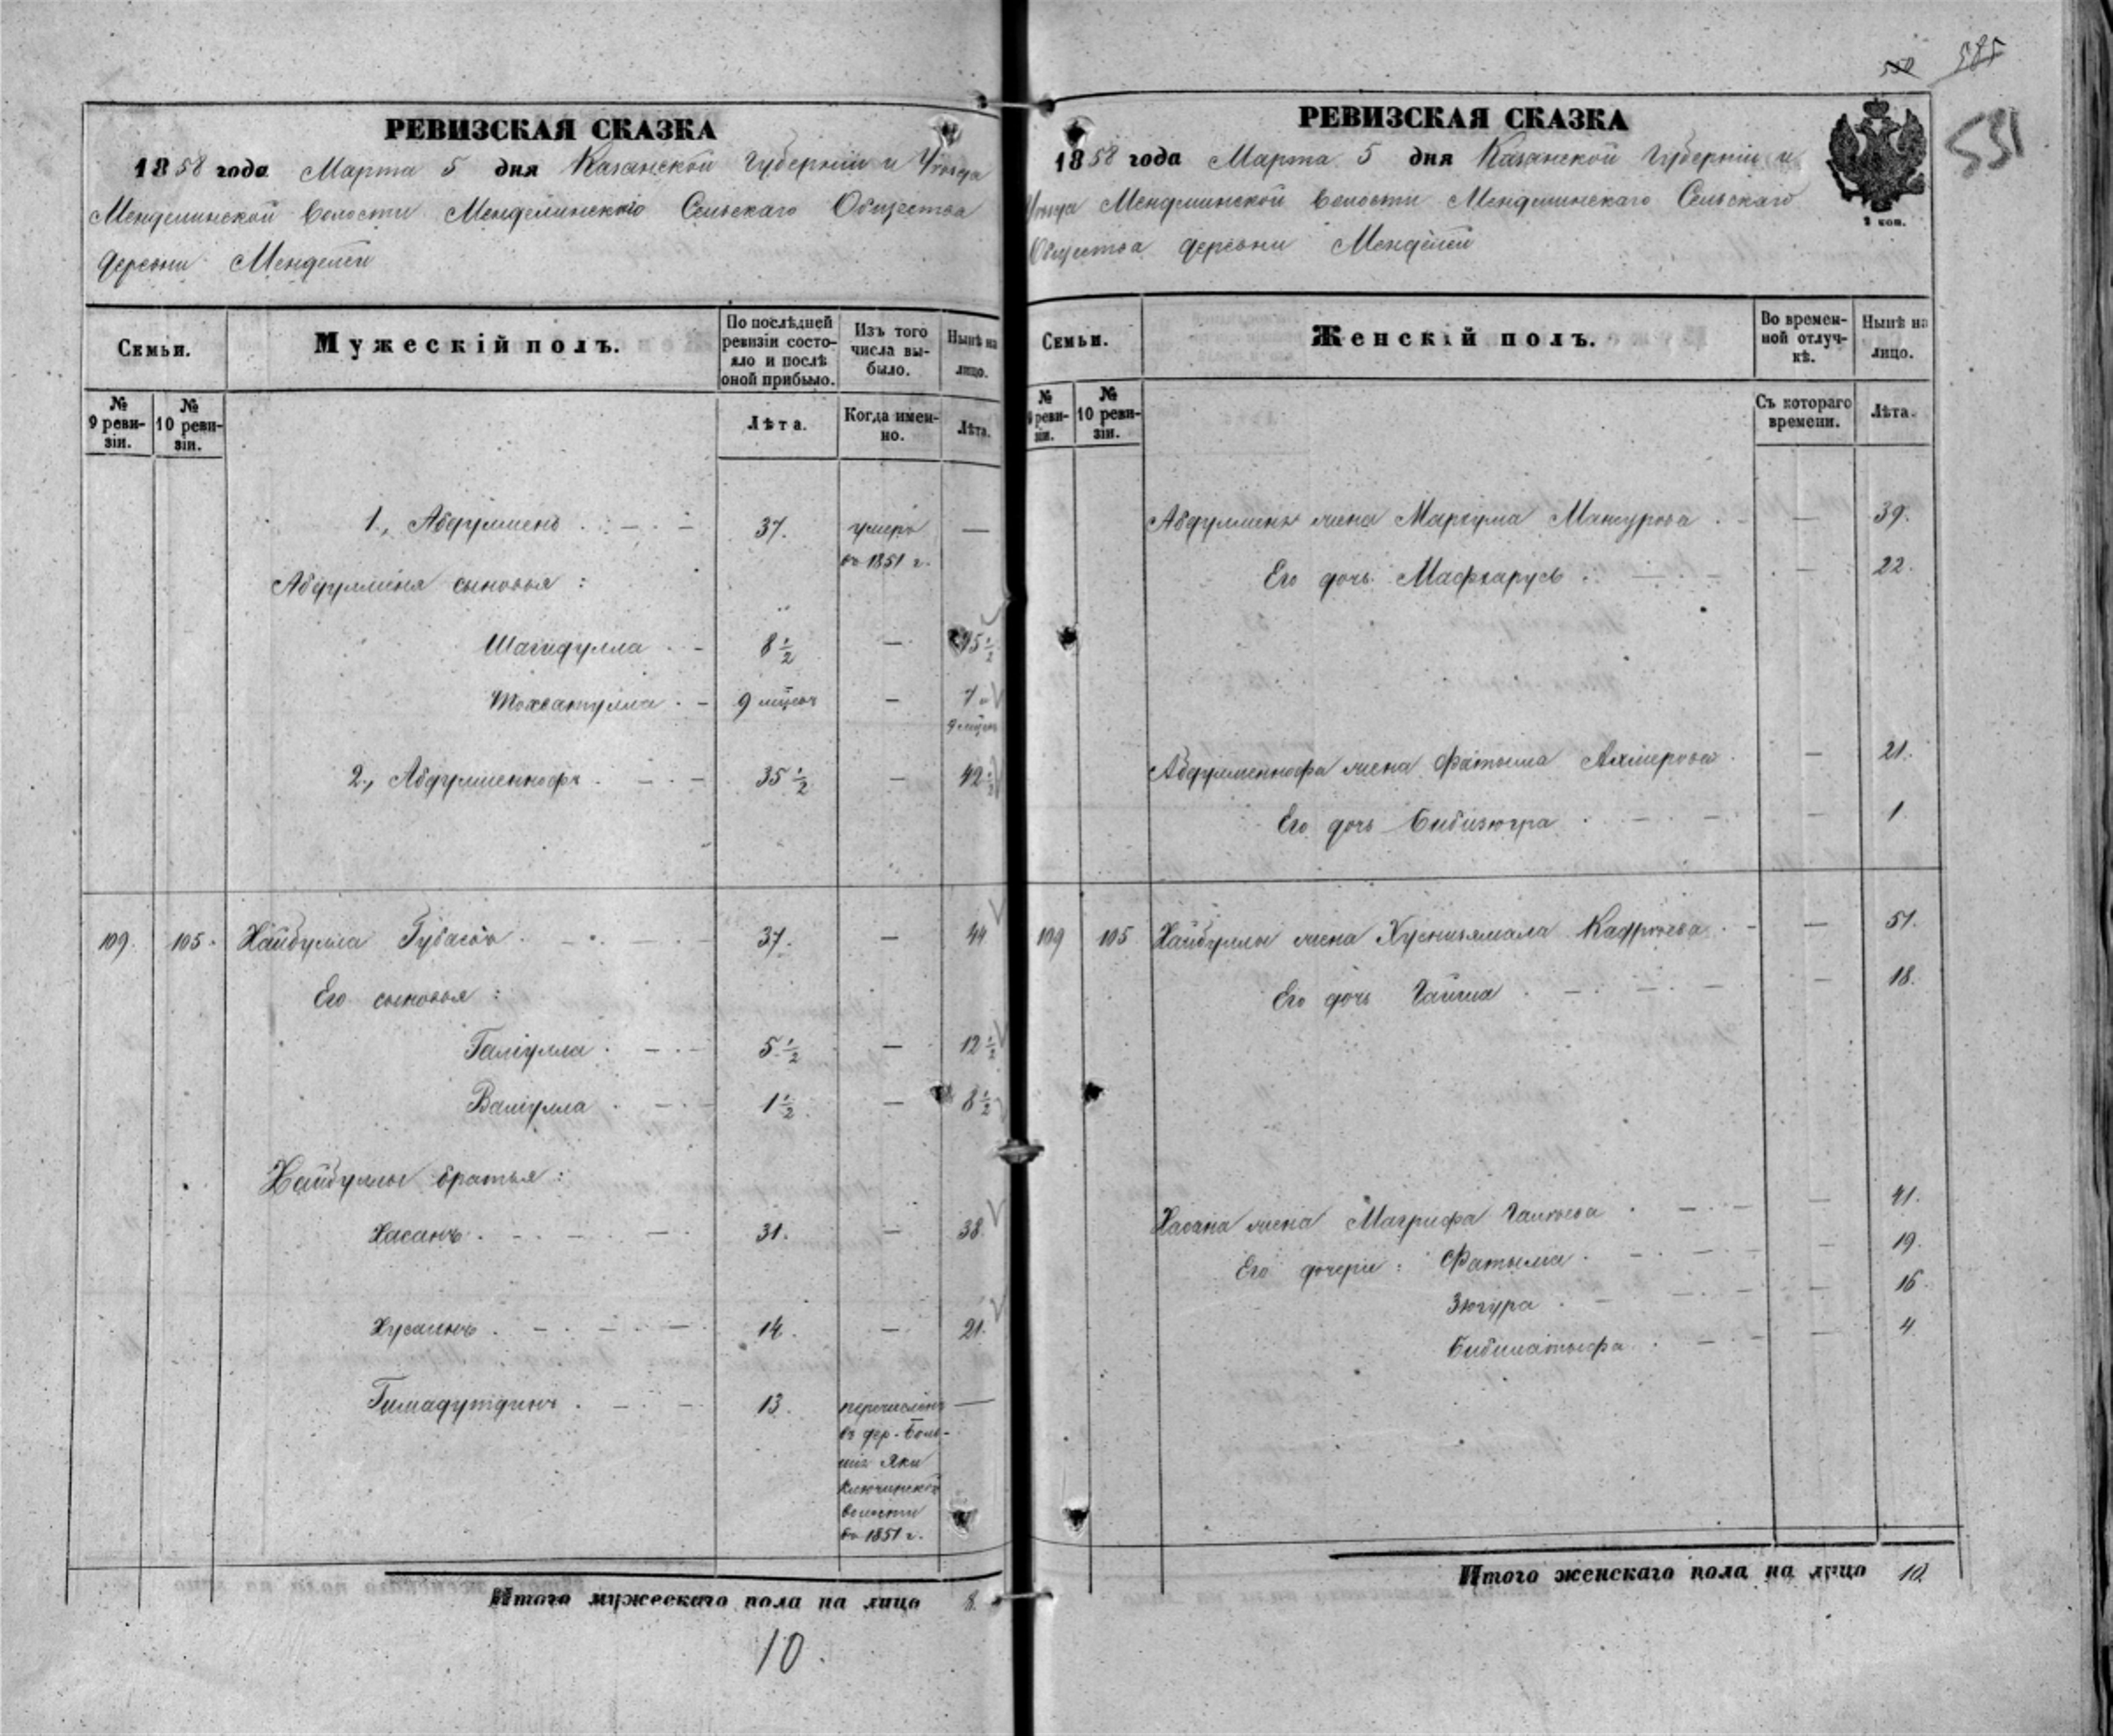 РЕВИЗСКАЯ СКАЗКА
1858 года Марта 5 дня Казанской Губернии и Уѣзда
Менделинской Волости Менделинскаго Сельскаго Общества
деревни Менделей
Семьи.
Мужескій полъ.
По послѣдней ревизіи состояло и послѣ оной прибыло.
Изъ того числа выбыло.
Нынѣ на лицо.
№ 9 ревизіи.
№ 10 ревизіи.
Лѣта.
Когда именно.
Лѣта.
1., Абдулменъ 37. умеръ —
въ 1851 г.
Абдулменя сыновья:
Шагидулла 8 1/2 — 15 1/2
9 мѣсяч — 7 и
9 мѣсяч
2., Абдулменнофъ 35 1/2 — 42 1/2
109. 105. Хайбулла Губасовъ 37. — 44
Его сыновья:
Галіулла 5 1/2 — 12 1/2
Валіулла 1 1/2 — 8 1/2
Хайбуллы братья:
Хасанъ 31. — 38
Хусаинъ 14. — 21.
Гимадутдинъ 13. перечисленъ —
въ дер. Боль-
шіе Яки
Ключинской
волости
въ 1851 г.
Итого мужескаго пола на лицо 8.
10.
550
585
531
РЕВИЗСКАЯ СКАЗКА
1858 года Марта 5 дня Казанской Губерніи и
Уѣзда Менделинской Волости Менделинскаго Сельскаго
Общества деревни Менделей
2 коп.
Семьи.
Женскій полъ.
Во временной отлучкѣ.
Нынѣ на лицо.
№ 9 ревизіи.
№ 10 ревизіи.
Съ котораго времени.
Лѣта.
жена Мансурова — 39.
Его дочь Мафхарусь — 22.
Абдулменнофа жена Фатыма — 21.
Его дочь Бибизюгра — 1.
109 105 Хайбуллы жена Хуснизямала — 51.
Его дочь Гайша — 18.
Хасана жена Магрифа — 41.
Его дочери: Фатыма — 19.
Зюгура — 16
— 4.
Итого женскаго пола на лицо 10.